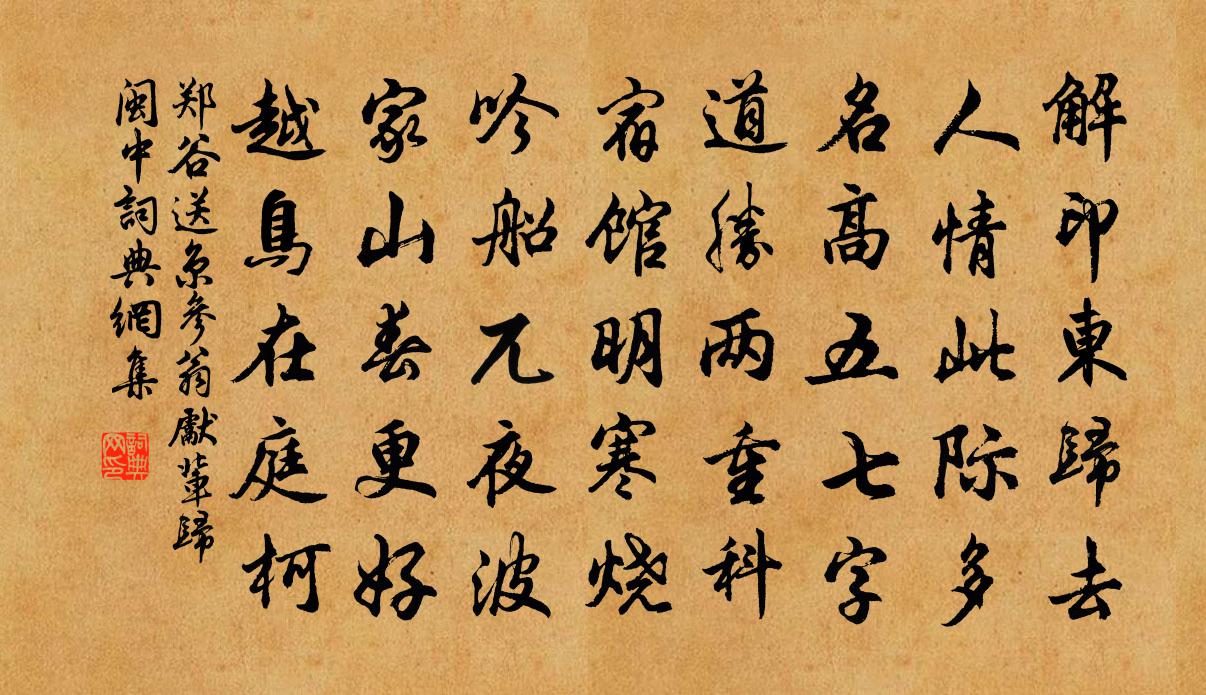 解印東歸去
人情此际多
名高五七字
道勝两重科
宿館明寒烧
吟船兀夜波
家山春更好
越鳥在庭柯
郑谷送京參翁獻輩歸
闽中詞典網集
詞典网印